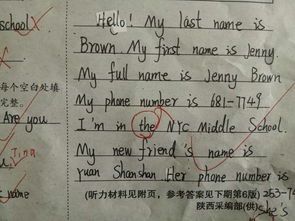 school
每个空白处填
完整。
Are you
Tina
name
Hello! My last name is
Brown. My first name is Jenny.
My full name is Jenny Brown
My phone number is 681-7749.
I'm in the NYC Middle School.
My new friend's name is
Yuan Shanshan Her phone number is
(听力材料见附页，参考答案见下期第6版) 253-74
陕西采编部(供) She's